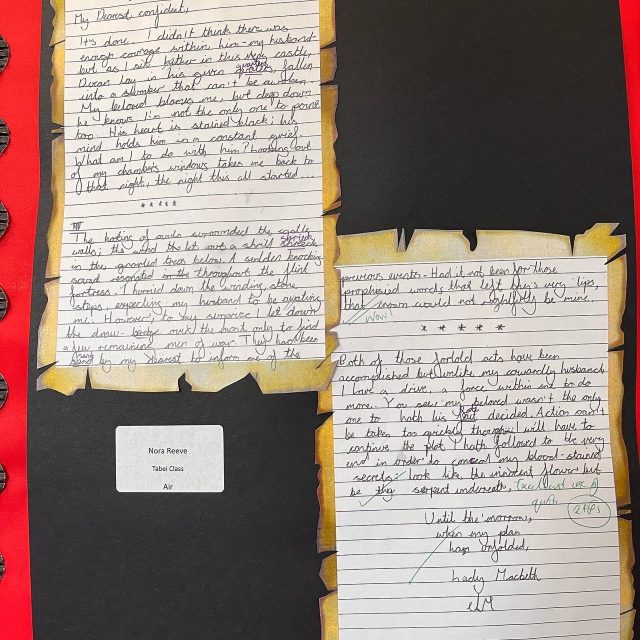 My Dearest confident,
It's done. I didn't think there was
enough courage within him - my husband-
but as I sit hither in this very castle,
Ducan lay in his given quarters, fallen
into a slumber that can't be awoken.
My beloved blames me, but deep down
he knows I'm not the only one to
too. His heart is stained black; his
mind holds him in a constant grief.
What am I to do with him? Looking out
of my chambers windows takes me back to
that night, the night this all started...
*****
The hooting of owls surrounded the castle
walls; the wind let out a shrill shriek
in the gnarled trees below. A sudden knocking
sound throughout the flint
fortress. I hurried down the winding stone
steps, expecting my husband to be awaiting
me! However, to my surprise I let down
the draw- over the moat only to find
a few remaining men of war. They had been
sent by my dearest to inform me of the
Nora Reeve
Tabei Class
Air
previous events. Had it not been for those
prophesied words that left very lips,
that crown would not rightfully be mine.
Wow!
*****
Both of those foretold acts have been
accomplished but unlike my cowardly husband
I have a drive, a force within me to do
more. You see my beloved wasn't the only
one to hath his fate decided. Action can't
be taken too quickly though; I will have to
continue the plot I hath followed to the very
end in order to conceal my blood-stained
secrets; look like the innocent flower but
be the serpent underneath. Excellent use of
quote
Until the morrow,
when my plan
has unfolded,
Lady Macbeth
LM